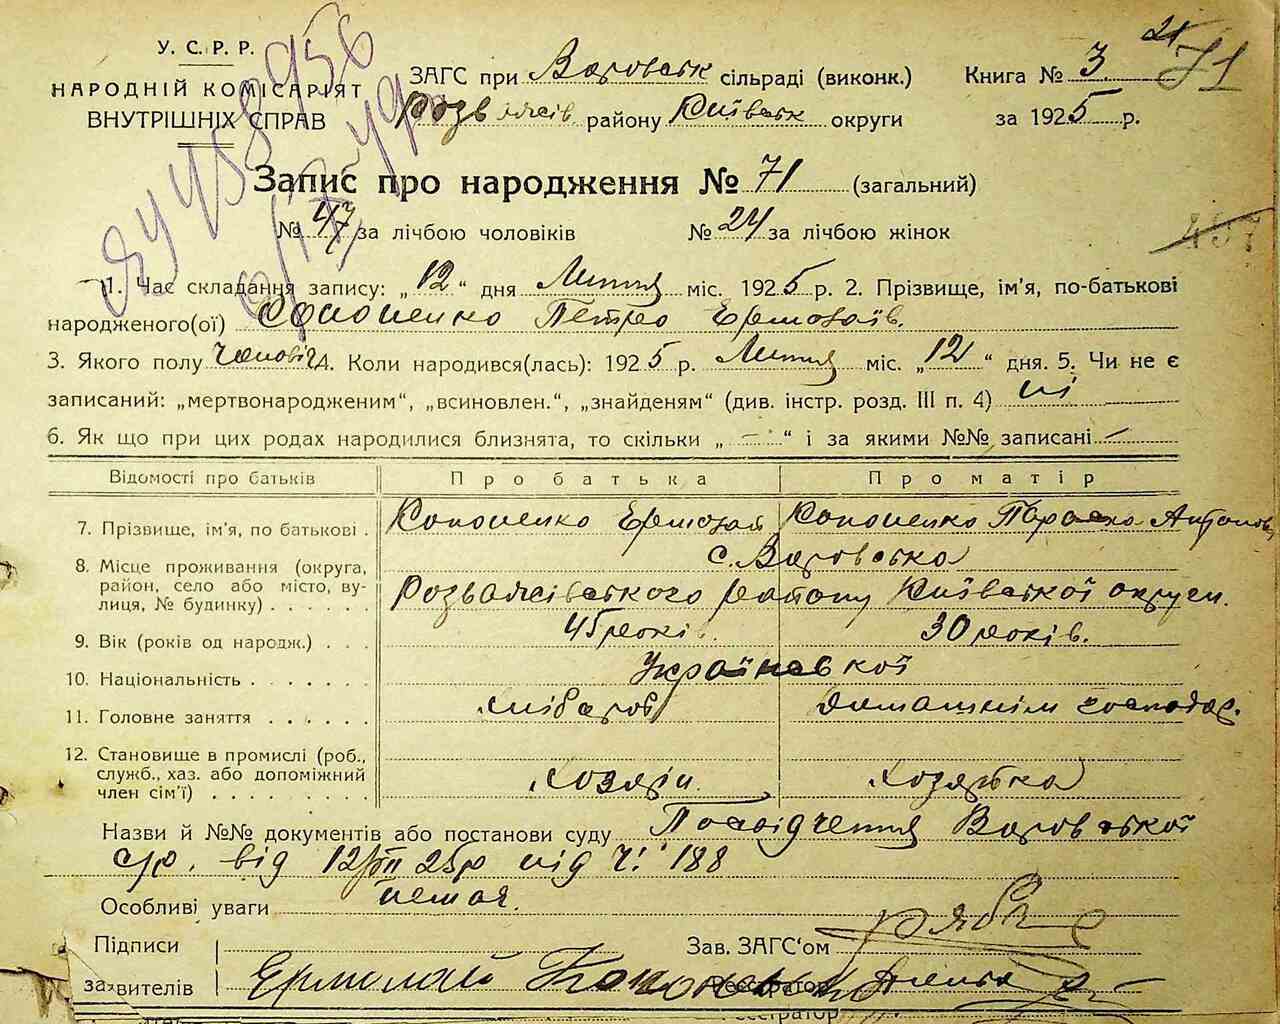 У. С. Р. Р.
НАРОДНІЙ КОМІСАРІЯТ
ВНУТРІШНІХ СПРАВ
ЗАГС при Воровськ сільраді (виконк.)
Розважів району Київськ округи
Книга № 3
за 1925 р.
71
Запис про народження № 71 (загальний)
№ 47 за лічбою чоловіків № 24 за лічбою жінок
497
1. Час складання запису: „12“ дня Липня міс. 1925 р. 2. Прізвище, ім'я, по-батькові
народженого(ої) Кононенко Петро Ермолаїв.
3. Якого полу чоловіч 4. Коли народився(лась): 1925 р. Липня міс. „12“ дня. 5. Чи не є
записаний: „мертвонародженим“, „всиновлен.“, „знайденям“ (див. інстр. розд. III п. 4) ні
6. Як що при цих родах народилися близнята, то скільки „ — “ і за якими №№ записані —
Відомості про батьків Про батька Про матір
7. Прізвище, ім'я, по батькові . Кононенко Ермолай Кононенко Параска Антонов
8. Місце проживання (округа, с. Воровська
район, село або місто, ву-
лиця, № будинку) . . . . . . Розважівського району Київської округи.
9. Вік (років од народж.) . . . 45 років. 30 років.
10. Національність . . . . . Української
11. Головне заняття . . . . . . хлібороб домашнім господар.
12. Становище в промислі (роб.,
служб., хаз. або допоміжний
член сім'ї) . . . . . . . . Хозяін. Хозяйка
Назви й №№ документів або постанови суду Посвідчення Воровської
с/р. від 12/VII 25р під ч. 188
Особливі уваги немає.
Підписи Зав. ЗАГС'ом
заявителів Ермолай Кононенко Реєстратор